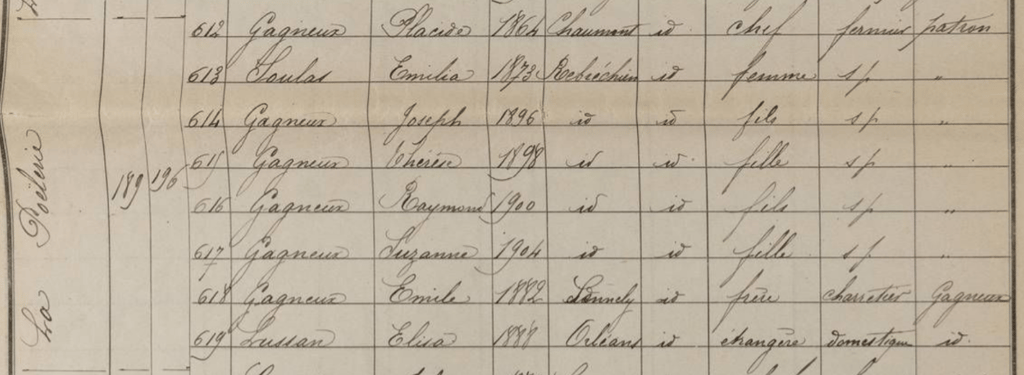 612 Gagneux Placide 1864 Chaumont id chef fermier patron
613 Soulas Emilia 1873 Rebréchien id femme sp "
614 Gagneux Joseph 1896 id id fils sp "
615 Gagneux Thérèse 1898 id id fille sp "
La Poëlerie 189 196
616 Gagneux Raymond 1900 id id fils sp "
617 Gagneux Suzanne 1904 id id fille sp "
618 Gagneux Emile 1882 id frère charretier Gagneux
619 Lussan Elisa 1888 Orléans id étrangère domestique id